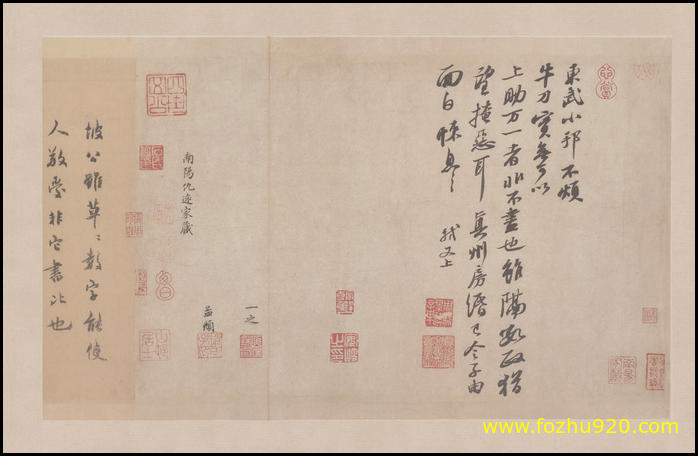 東武小邦不煩
牛刀實無可以
上助万一者非不盡也雖隔數政猶
望掩惡耳真州房緡已令子由
面白悚息〻
軾又上
一之
益頫
南陽仇遠家藏
坡公雖草〻數字能使
人敬愛非它書比也
www.fozhu920.com